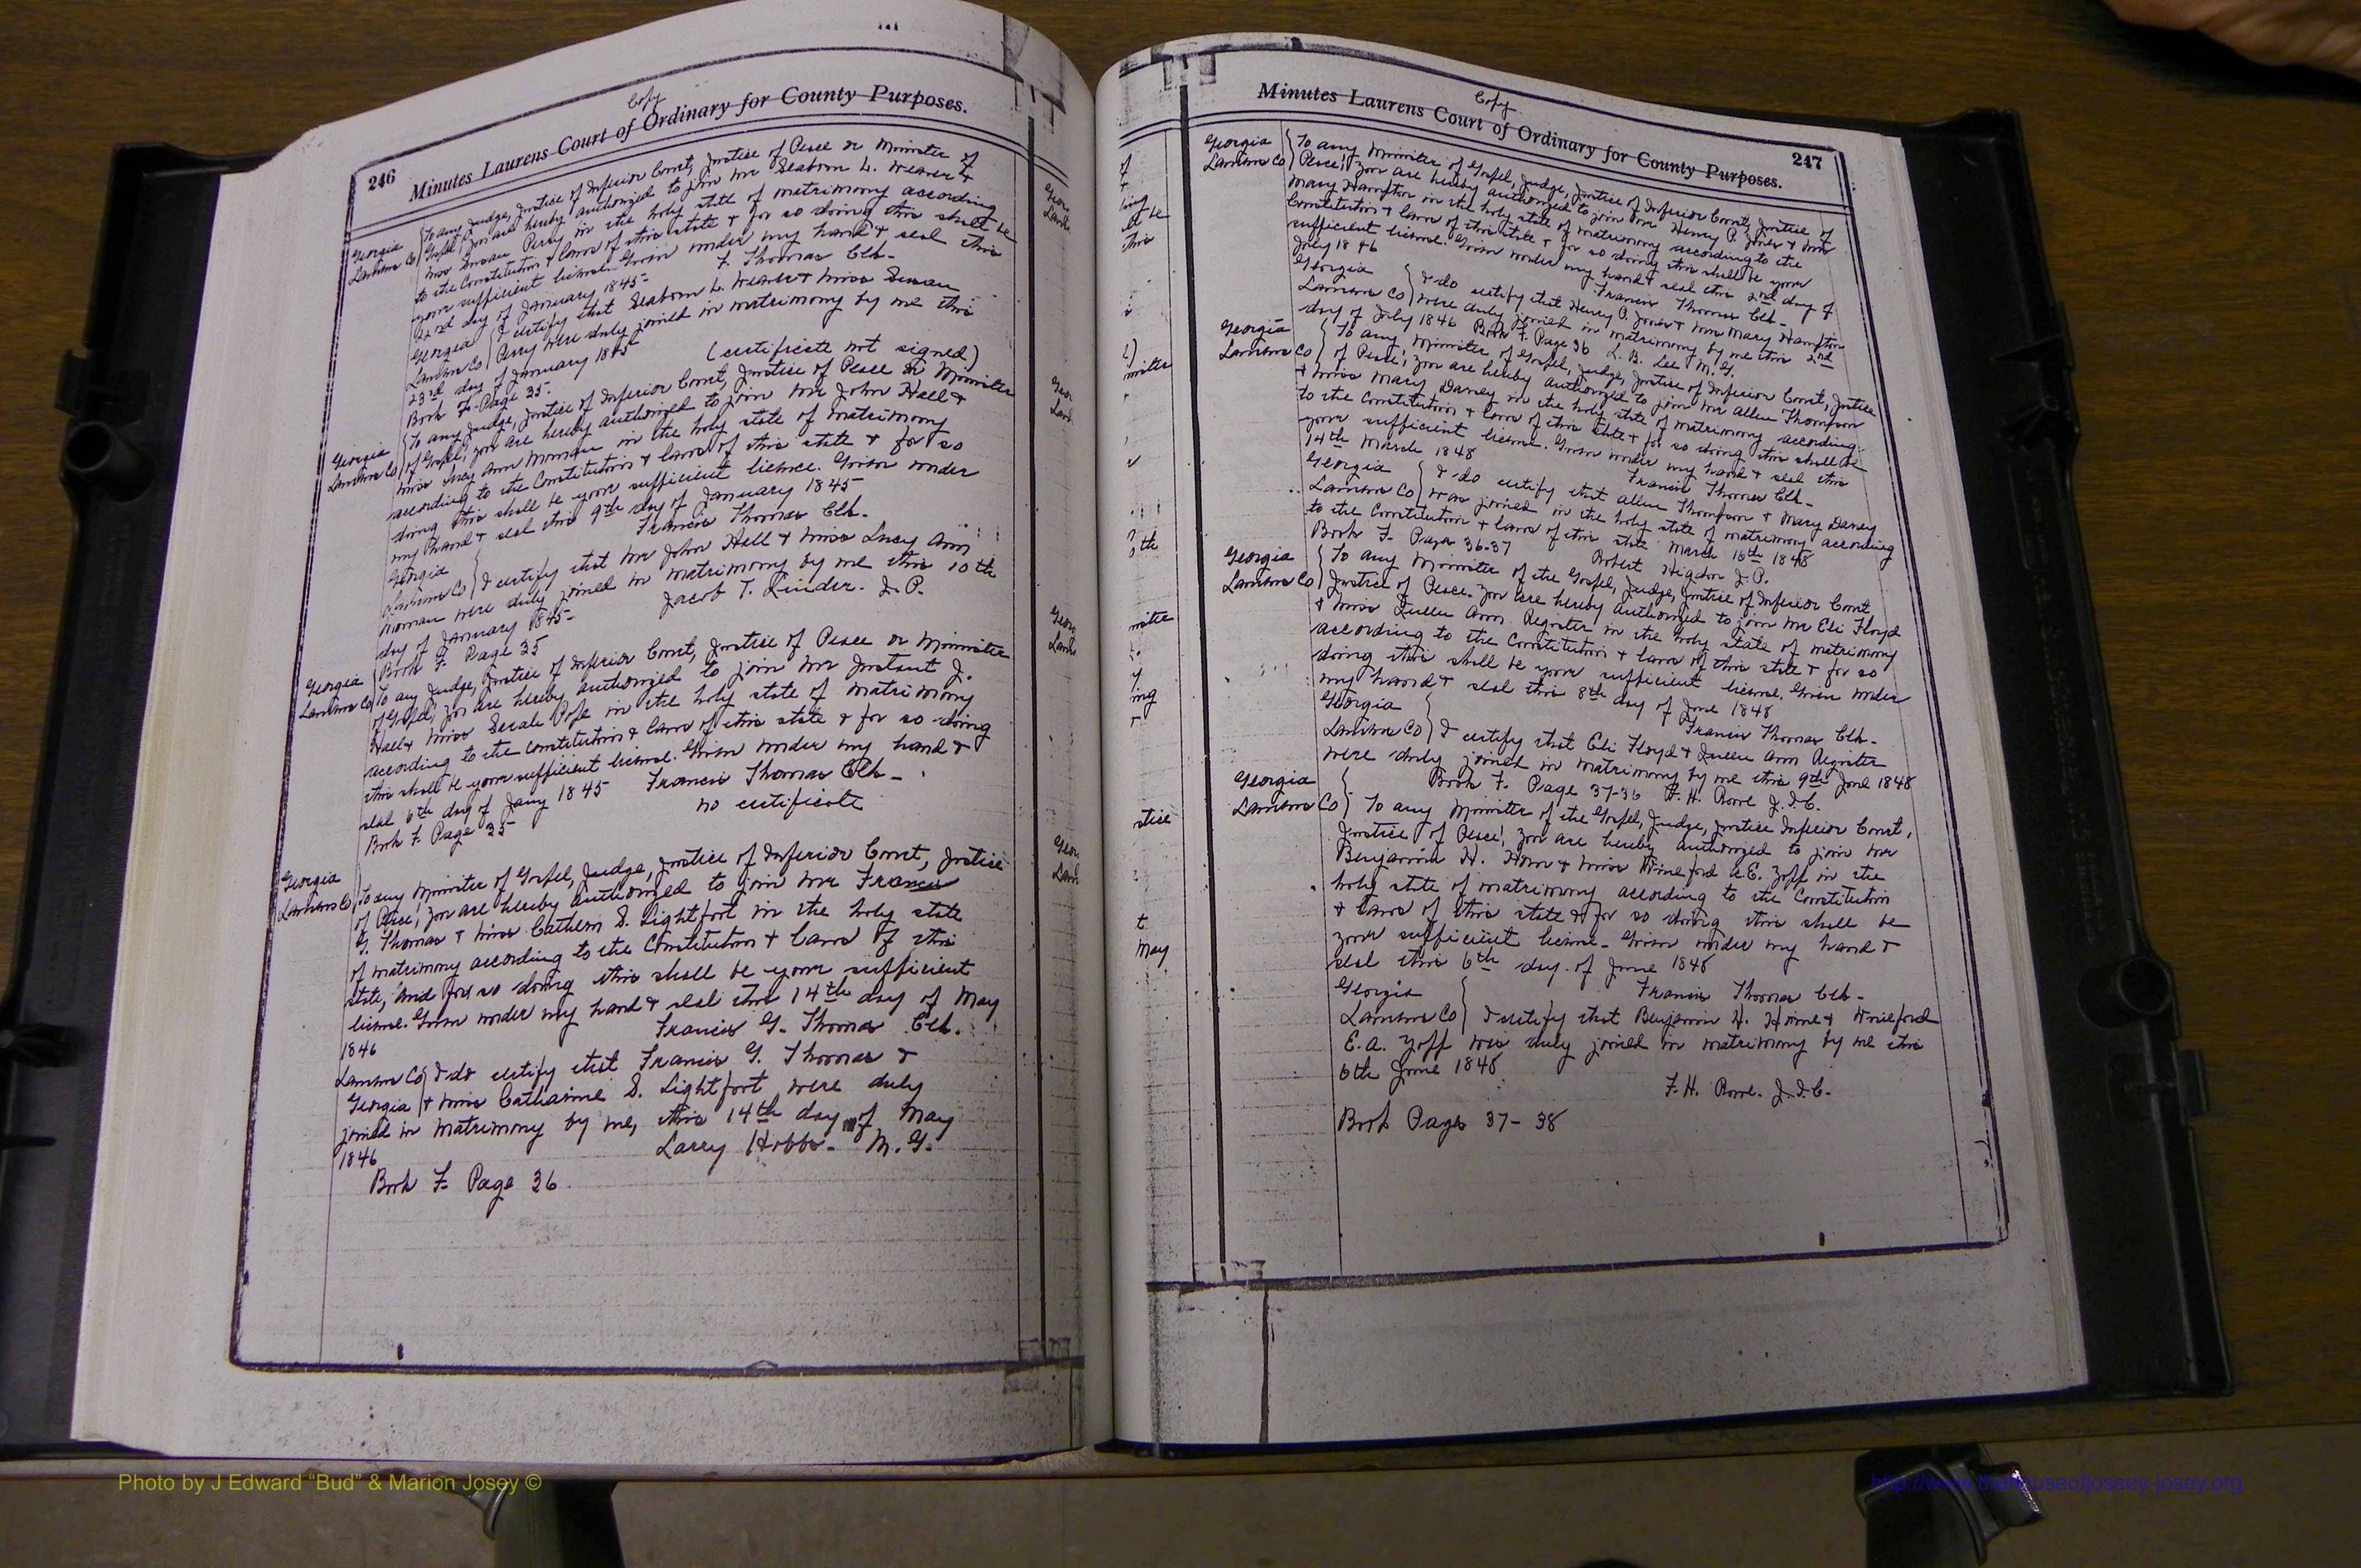 Copy
246 Minutes Laurens Court of Ordinary for County Purposes.
Georgia
Laurens Co
To any Judge, Justice of Inferior Court, Justice of Peace or Minister of
Gospel, you are hereby authorized to join Mr Seaborn L. Weaver &
Miss Susan Perry in the holy state of matrimony according
to the Constitution & laws of this state & for so doing this shall be
your sufficient license. Given under my hand & seal this
22nd day of January 1845- F. Thomas Clk-
Georgia
Laurens Co
I certify that Seaborn L. Weaver & Miss Susan
Perry were duly joined in matrimony by me this
23rd day of January 1845
(certificate not signed)
Book F- Page 35-
Georgia
Laurens Co
To any Judge, Justice of Inferior Court, Justice of Peace or Minister
of Gospel, you are hereby authorized to join Mr John Hall &
Miss Lucy Ann in the holy state of matrimony
according to the Constitution & laws of this state & for so
doing this shall be your sufficient licence. Given under
my hand & seal this 9th day of January 1845-
Francis Thomas Clk-
Georgia
Laurens Co
I certify that Mr John Hall & Miss Lucy Ann
were duly joined in matrimony by me this 10th
day of January 1845- Jacob T. Linder. J.P.
Book F Page 35
Georgia
Laurens Co
To any Judge, Justice of Inferior Court, Justice of Peace or Minister
of Gospel, you are hereby authorized to join Mr Instant J.
Hall & Miss Pope in the holy state of matrimony
according to the constitution & laws of this state & for so doing
this shall be your sufficient license. Given under my hand &
seal 6th day of Jany 1845 Francis Thomas Clk-
Book F Page 35 no certificate
Georgia
Laurens Co
To any Minister of Gospel, Judge, Justice of Inferior Court, Justice
of Peace; you are hereby authorized to join Mr Francis
G. Thomas & Miss Cathern S. Lightfort in the holy state
of matrimony according to the Constitution & laws of this
state, and for so doing this shall be your sufficient
license. Given under my hand & seal this 14th day of May
1846 Francis G. Thomas Clk.
Laurens Co
Georgia
I do certify that Francis G. Thomas &
& Miss Catharine S. Lightfort were duly
joined in matrimony by me, this 14th day of May
1846 Larry Hobbs- M.G.
Book F Page 36
Copy
Minutes Laurens Court of Ordinary for County Purposes. 247
Georgia
Laurens Co
To any Minister of Gospel, Judge, Justice of Inferior Court, Justice of
Peace; you are hereby authorized to join Mr Henry P. Jones & Mrs
Mary Hampton in the holy state of matrimony according to the
Constitution & laws of this state & for so doing this shall be your
sufficient license. Given under my hand & seal this 2nd day of
July 1846 Francis Thomas Clk-
Georgia
Laurens Co
I do certify that Henry P. Jones & Mrs Mary Hampton
were duly joined in matrimony by me this 2nd
day of July 1846 Book F. Page 36 L. B. Lee M.G.
Georgia
Laurens Co
To any Minister of Gospel, Judge, Justice of Inferior Court, Justice
of Peace; you are hereby authorized to join Mr Allen Thompson
& Miss Mary Daney in the holy state of matrimony according
to the Constitution & laws of this state & for so doing this shall be
your sufficient license. Given under my hand & seal this
14th March 1848 Francis Thomas Clk-
Georgia
Laurens Co
I do certify that Allen Thompson & Mary Daney
was joined in the holy state of matrimony according
to the Constitution & laws of this state March 16th 1848
Book F- Pages 36-37 Robert Higdon J.P.
Georgia
Laurens Co
To any Minister of the Gospel, Judge, Justice of Inferior Court
Justice of Peace. You are hereby authorized to join Mr Eli Floyd
& Miss Queen Ann Register in the holy state of matrimony
according to the Constitution & laws of this state & for so
doing this shall be your sufficient license. Given under
my hand & seal this 8th day of June 1848
Francis Thomas Clk-
Georgia
Laurens Co
I certify that Eli Floyd & Queen Ann Register
were duly joined in matrimony by me this 9th June 1848
Book F. Page 37-36 F. H. Rowe J.I.C.
Georgia
Laurens Co
To any Minister of the Gospel, Judge, Justice Inferior Court,
Justice of Peace; you are hereby authorized to join Mr
Benjamin H. Horn & Miss Wineford A.E. Zoff in the
holy state of matrimony according to the Constitution
& laws of this state & for so doing this shall be
your sufficient license- Given under my hand &
seal this 6th day of June 1848
Francis Thomas Clk-
Georgia
Laurens Co
I certify that Benjamin H. Horne & Wineford
E.A. Zoff was duly joined in matrimony by me this
6th June 1848
F.H. Rowe. J.I.C.
Book Pages 37-38
Photo by J Edward “Bud” & Marion Josey ©
http://www.thehouseofjossey-josey.org